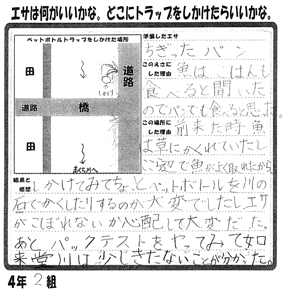 エサは何がいいかな。どこにトラップをしかけたらいいかな。
ペットボトルトラップをしかけた場所
田
道路
道路
橋
田
準備したエサ
ちぎった パン
このえさにした理由
魚はごはんも
食べると聞いた
のでパンも食べると思った。
この場所にした理由
前来た時魚
は草にかくれていたし
ここで魚がよく取れたから
結果と感想
しかけてみてちょっとペットボトルを川の
石でかくしたりするのが大変でしたし、エサ
がこぼれないか心配して大変だった。
あと パックテストをやってみて如
来堂川は少しきたないことが分かった。
4年 2 組